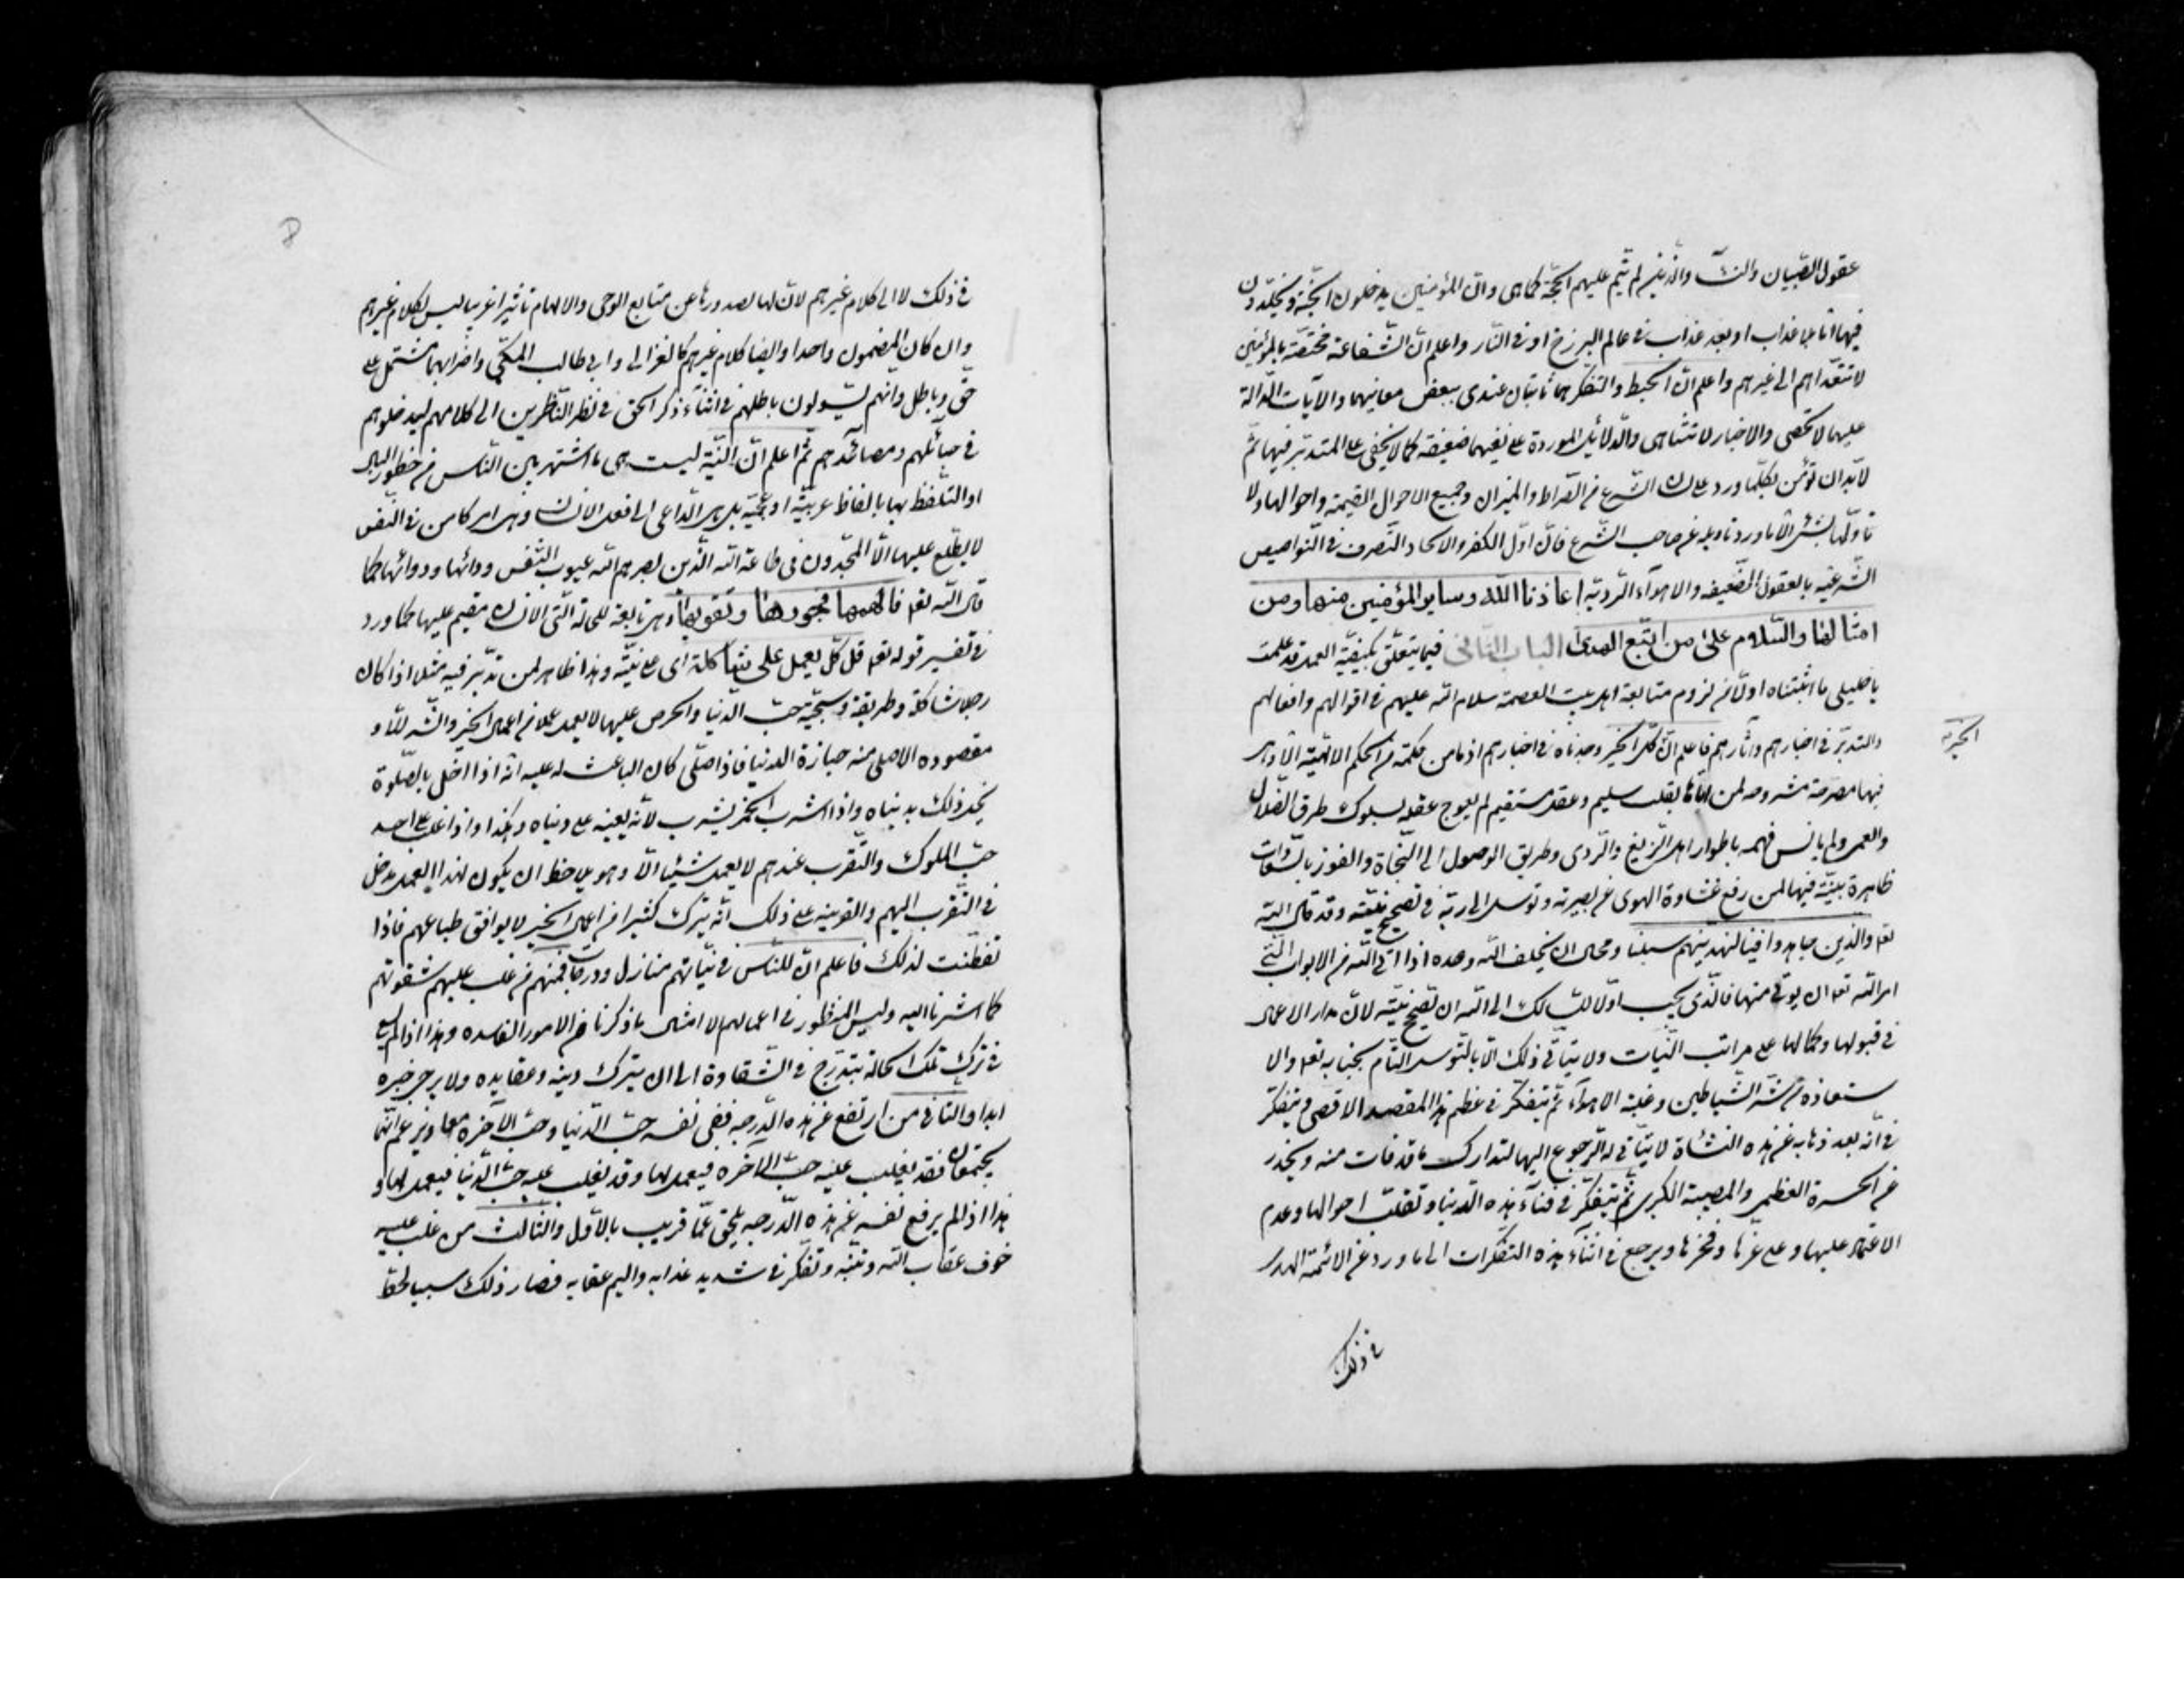 عقول الصّبيان والنسآء والذين لم تتم عليهم الحجّة كما هى وانّ المؤمنين يدخلون الجنّة ويخلّدون
فيها امّا بلا عذاب او بعد عذاب فى عالم البرزخ او فى النّار واعلم انّ الشّفاعة مختصّة بالمؤمنين
لا تتعدّاهم الى غيرهم واعلم انّ الحبط والتكفير هما ثابتان عندى ببعض معانيهما والآيات الدّالّة
عليهما لا تحصى والاخبار لا تتناهى والدّلائل الموردة على نفيهما ضعيفة كما لا يخفى على المتدبّر فيها ثمّ
لا بدّ ان تؤمن بكلّما ورد على لسان الشّرع من الصّراط والميزان وجميع الاحوال القيمة واحوالها ولا
تأوّلها بشىء الّا ما ورد تاويله عن صاحب الشّرع فانّ اوّل الكفر والالحاد التّصرف فى النّواميس
الشّرعيّه بالعقول الضّعيفه والاهوآء الرّديّه اعاذنا الله وساير المؤمنين منها ومن
امثالها والسّلام على من اتّبع الهدى الباب الثّانى فيما يتعلّق بكيفيّة العمل قد علمت
يا خليلى ما اثبتناه اوّلا من لزوم متابعة اهل بيت العصمة سلام الله عليهم فى اقوالهم وافعالهم
والتدبّر فى اخبارهم وآثارهم فاعلم انّ كلّ الخير وجدناه فى اخبارهم اذ ما من حكمة من الحكم الالهيّة الّا وهى
الخيريّة
فيها مصرحة مشروحه لمن اتاها بقلب سليم وعقل مستقيم لم يعوج عقله بسلوك طرق الضّلال
والعمى ولم يانس فهمه باطوار اهل الزّيغ والرّدى وطريق الوصول الى النّجاة والفوز بالسّعادات
ظاهرة بيّنة فيها لمن رفع غشاوة الهوى عن بصيرته وتوسل الى ربّه فى تصحيح نيّته وقد قال الله
تعا والذين جاهدوا فينا لنهدينّهم سبلنا ومحال ان يخلف الله وعده اذا اتى الله من الابواب الّتى
امر الله تعا ان يؤتى منها فالّذى يجب اوّلا للسّالك الى الله ان يصحّح نيّته لانّ مدار الاعمال
فى قبولها وكمالها على مراتب النّيات ولا يتأتّى ذلك الّا بالتّوسل التّام بجنابه تعا والا
ستعاذه من شرّ الشّياطين وغلبة الاهوآء ثمّ يتفكّر فى عظم هذا المقصد الاقصى ويتفكّر
فى انّه بعد ذهابه عن هذه النشأة لا يتأتّى له الرّجوع اليها لتدارك ما قد فات منه ويحذر
عن الحسرة العظمى والمصيبة الكبرى ثمّ يتفكّر فى فنآء هذه الدّنيا وتقلّب احوالها وعدم
الاعتماد عليها وعلى عزّها وفخرها ويرجع فى اثنآء هذه التفكّرات الى ما ورد عن الائمّة الهدى
فى ذلك
فى ذلك لا الى كلام غيرهم لانّ لها لصدورها عن منابع الوحى والالهام تاثيرا غريبا ليس لكلام غيرهم
وان كان المضمون واحدا وايضا كلام غيرهم كالغزالى وابى طالب المكّى واضرابهما مشتمل على
حقّ وباطل وانهم يسولون باطلهم فى اثنآء ذكر الحق فى نظر النّاظرين الى كلامهم ليدخلوهم
فى حبآئلهم ومصائدهم ثمّ اعلم انّ النّيّة ليست هى ما اشتهر بين النّاس من خطور البال
او التلفّظ بها بالفاظ عربيّة او عجميّه بل هى الدّاعى الى فعل الانسان وهى امر كامن فى النّفس
لا يطّلع عليها الّا المجدّون فى طاعة الله الذّين بصرهم الله عيوب النّفس ودائها ودوائها كما
قال الله تعا فالهمها فجورها وتقويها وهى تابعة للحالة الّتى الانسان مقيم عليها كما ورد
فى تفسير قوله تعا قل كلّ يعمل على شاكلته اى على نيّته وهذا ظاهر لمن تدبّر فيه مثلا اذا كان
رجل شاكلته وطريقة وسجيّته حبّ الدّنيا والحرص عليها لا يعمل عملا من اعمال الخير والشّر الّا و
مقصوده الاصلى منه حيازة الدنيا فاذا صلّى كان الباعث له عليه انّه اذا اخل بالصّلوة
يخلّ ذلك بدنياه واذا شرب الخمر يشرب لانّه يعينه على دنياه وهكذا واذا غلب على احد
حبّ الملوك والتّقرب عندهم لا يعمل شيئا الّا وهو يلاحظ ان يكون لهذا العمل مدخل
فى التّقرب اليهم والقرينه على ذلك انّه يترك كثيرا من اعمال الخير لا يوافق طباعهم فاذا
تفطّنت لذلك فاعلم انّ للنّاس فى نيّاتهم منازل ودرجات فمنهم من غلب عليهم شقوتهم
كما اشرنا اليه وليس المنظور فى اعمالهم الا امثال ما ذكرنا من الامور الفاسده وهذا اذا لم يسع
فى ترك تلك الحالة يتدرّج فى الشّقاوة الى ان يترك دينه وعقايده ولا يرجى خيره
ابدا والثانى من ارتفع عن هذه الدّرجه ففى نفسه حبّ الدّنيا وحبّ الآخره معا ويزعم انّهما
يجتمعان فقد يغلب عليه حبّ الآخره فيعمل لها وقد يغلب عليه حبّ الدّنيا فيعمل لها و
هذا اذا لم يرفع نفسه عن هذه الدّرجه يلحق عمّا قريب بالاوّل والثّالث من غلب عليه
خوف عقاب الله وتنبّه وتفكّر فى شديد عذابه واليم عقابه فصار ذلك سببا لحطّ